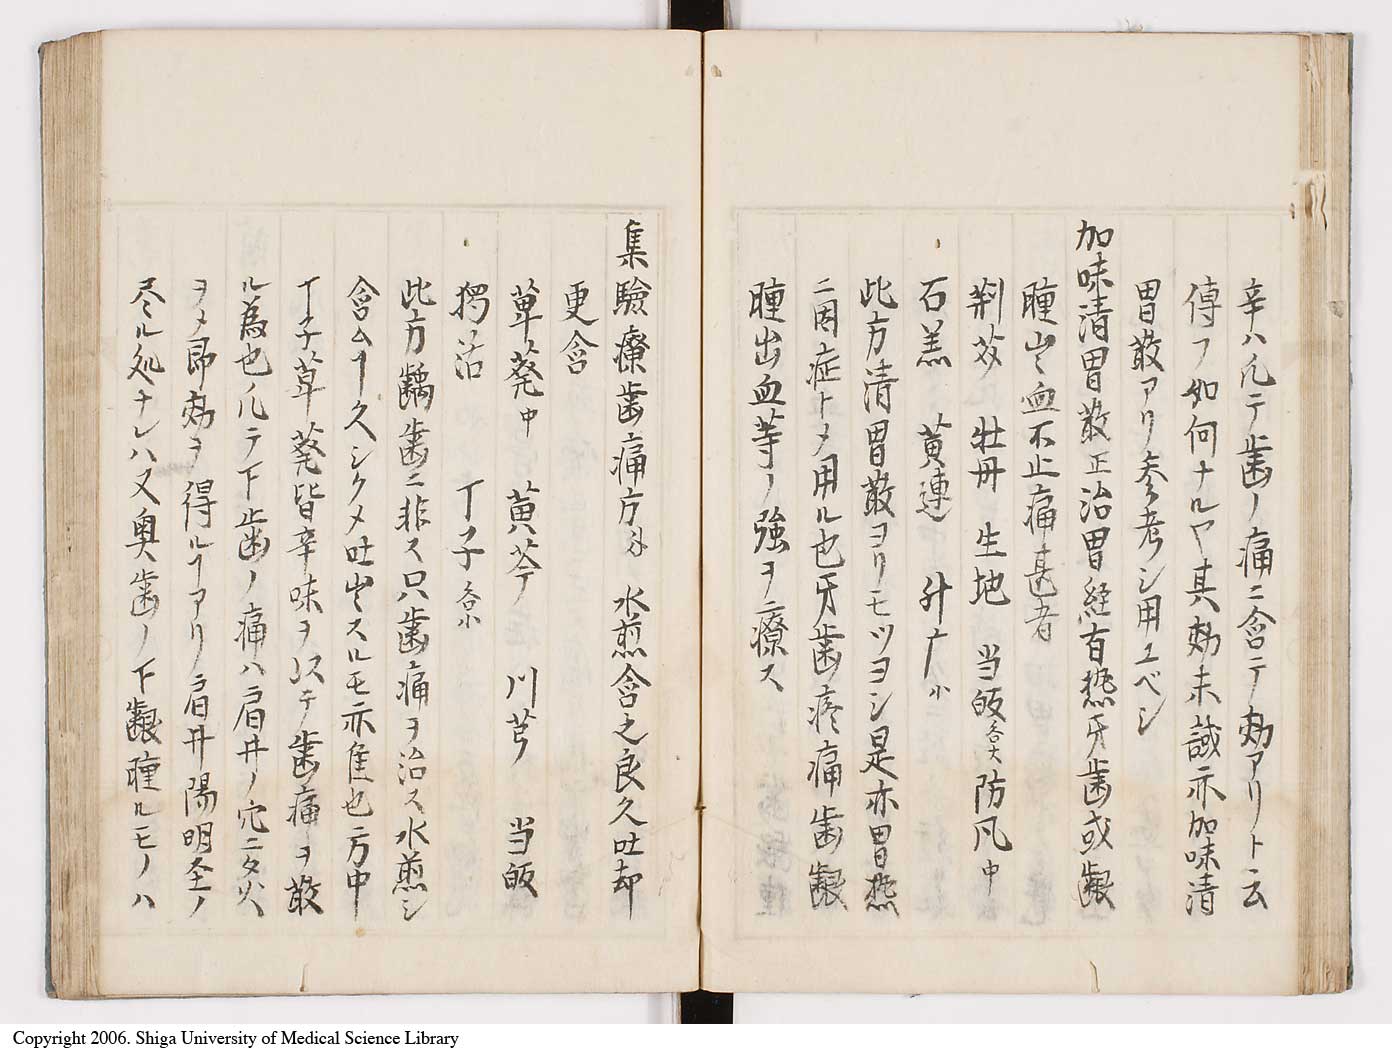 辛ハ凡テ歯ノ痛ニ含テ効アリト云
傳フ如何ナルヤ其効未誠亦加味清
胃散アリ参考シ用ユベシ
加味清胃散正治胃経有熱牙歯或齦
腫出血不止痛甚者
荆芥 牡丹 生地 当皈各大 防凡中
石羔 黄連 升广小
此方清胃散ヨリモツヨシ是亦胃熱
ニ因症トメ用ル也牙歯疼痛歯齦
腫出血等ノ強ヲ療ス
集驗療歯痛方 水煎含之良久吐却
更含
草薢中 黄芩 川芎 当皈
独活 丁子各小
此方齲歯ニ非ス只歯痛ヲ治ス水煎シ
含ムヿ久シクメ吐出スルモ亦隹也方中
丁子草薢皆辛味ヲ以テ歯痛ヲ散
ル為也凡テ下歯ノ痛ハ肩井ノ穴ニ火
ヲメ即効ヲ得ルヿアリ肩井陽明圣ノ
尽ル処ナレハ又奥歯ノ下齦腫ルモノハ
Copyright 2006. Shiga University of Medical Science Library